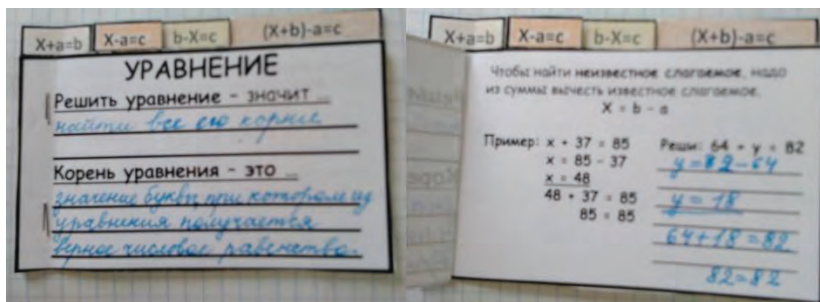 X+a=b X-a=c b-X=c (X+b)-a=c
УРАВНЕНИЕ
Решить уравнение - значит ...
найти все его корни
Корень уравнения - это ...
значение буквы при котором из
уравнения получается
верное числовое равенство.
X+a=b X-a=c b-X=c (X+b)-a=c
Чтобы найти неизвестное слагаемое, надо
из суммы вычесть известное слагаемое.
X = b - a
Пример: x + 37 = 85
x = 85 - 37
x = 48
48 + 37 = 85
85 = 85
Реши: 64 + y = 82
y = 82 - 64
y = 18
64+18=82
82=82